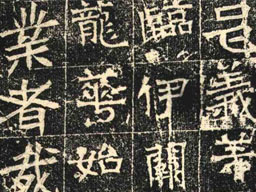 歲
臨伊闕
龍華始
業者哉